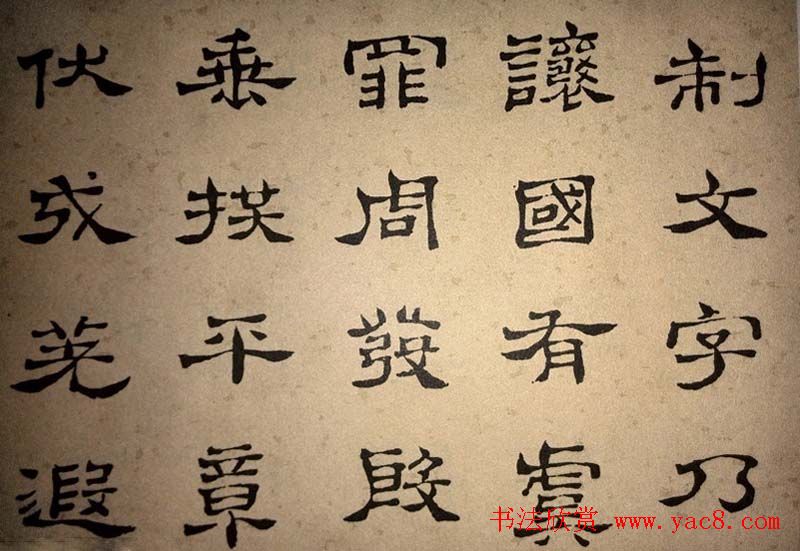 制文字乃
讓國有虞
罪周發殷
垂拱平章
伏戎羌遐
书法欣赏 www.yac8.com